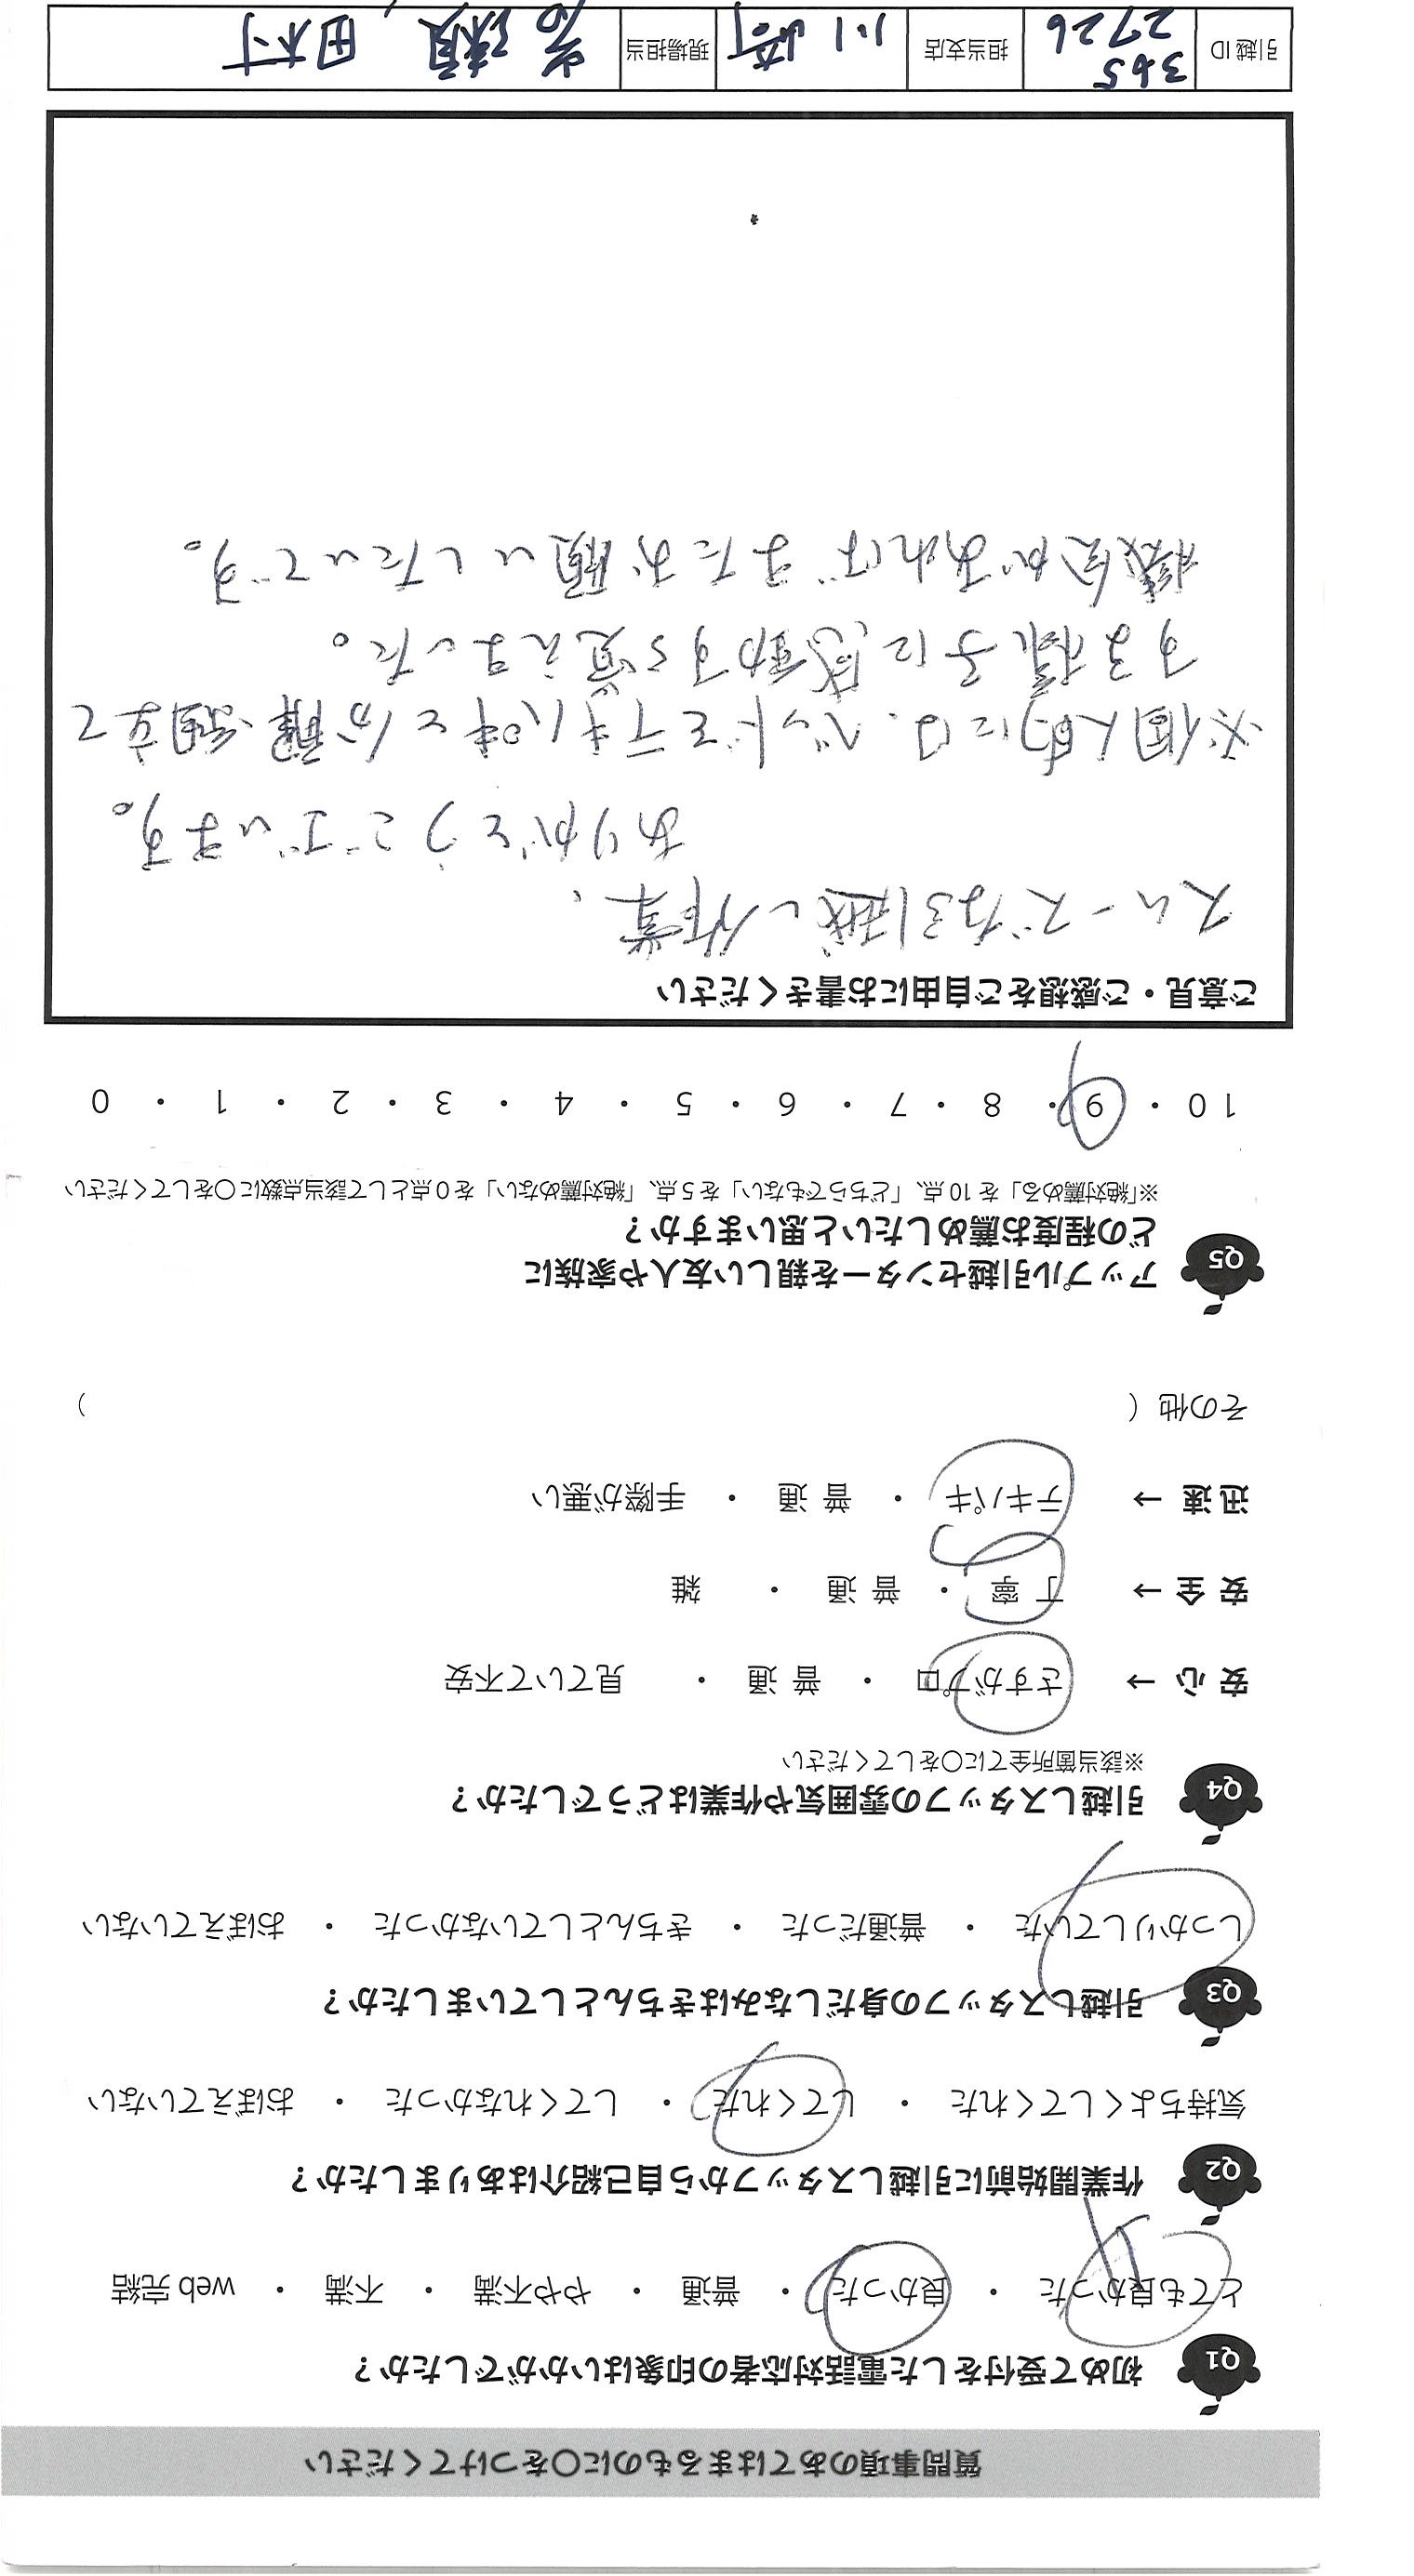 質問事項のあてはまるものに○をつけてください
Q1 初めて受付をした電話対応者の印象はいかがでしたか？
とても良かった ・ 良かった ・ 普通 ・ やや不満 ・ 不満 ・ web 完結
Q2 作業開始前に引越しスタッフから自己紹介はありましたか？
気持ちよくしてくれた ・ してくれた ・ してくれなかった ・ おぼえていない
Q3 引越しスタッフの身だしなみはきちんとしていましたか？
しっかりしていた ・ 普通だった ・ きちんとしていなかった ・ おぼえていない
Q4 引越しスタッフの雰囲気や作業はどうでしたか？
※該当箇所全てに○をしてください
安 心 → さすがプロ ・ 普 通 ・ 見ていて不安
安 全 → 丁 寧 ・ 普 通 ・ 雑
迅 速 → テキパキ ・ 普 通 ・ 手際が悪い
その他（ ）
Q5 アップル引越センターを親しい友人や家族に
どの程度お薦めしたいと思いますか？
※「絶対薦める」を 10 点、「どちらでもない」を 5 点、「絶対薦めない」を 0 点として該当点数に○をしてください
10 ・ 9 ・ 8 ・ 7 ・ 6 ・ 5 ・ 4 ・ 3 ・ 2 ・ 1 ・ 0
ご意見・ご感想をご自由にお書きください
スムーズな引越し作業、
ありがとうございます。
※個人的には、ベッドをテキパキと分解・組立て
する様子に感動すら覚えました。
機会があればまたお願いしたいです。
引越 ID 365
2726 担当支店 川崎 現場担当 田村